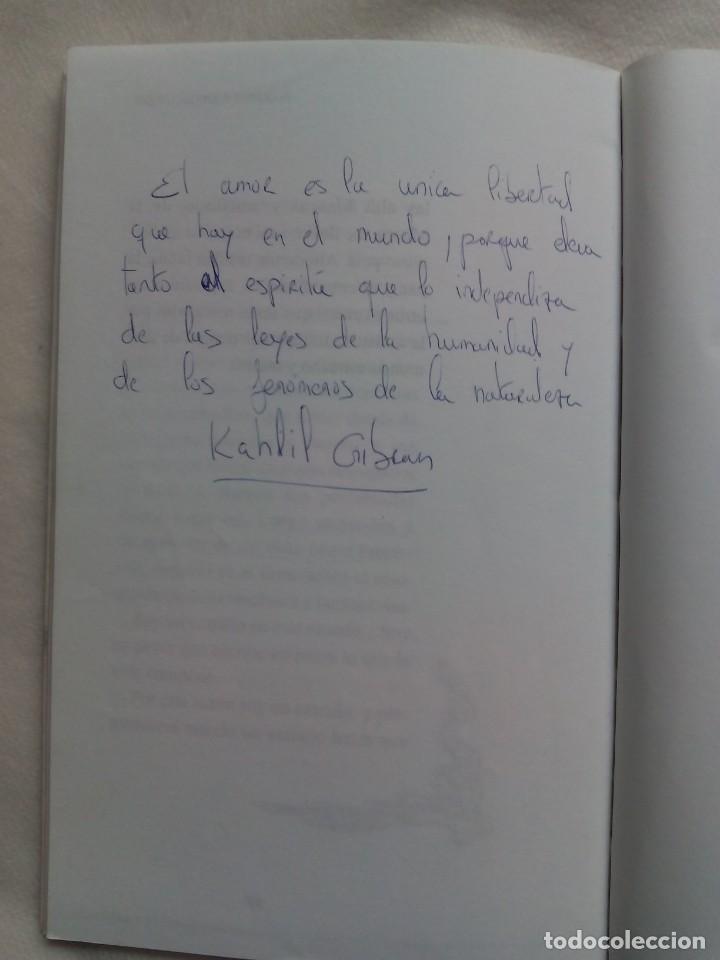 El amor es la unica libertad
que hay en el mundo, porque eleva
tanto al espiritú que lo independiza
de las leyes de la humanidad y
de los fenómenos de la naturaleza
Kahlil Gibran
todocoleccion